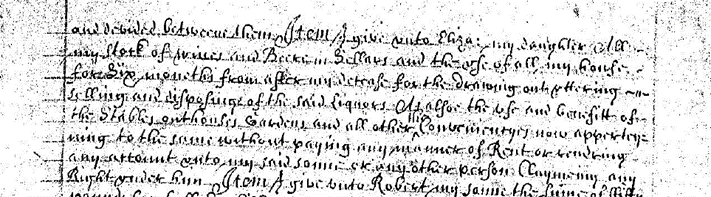 and devided betweene them Item I give unto Eliza: my daughter All
my stock of wines and Beere in Sellars and the use of all my house
for Six months from after my decease for the drawing out uttering
selling and disposinge of the said Liquors As alsoe the use and benefitt of
the Stables outhouses Gardens and all other Conveniencyes now appertey-
ning to the same without paying any manner of Rent or rendring
any account unto my said sonne or any other person Claymeing any
Right under him Item I give unto Robert my sonne the summe of fifty